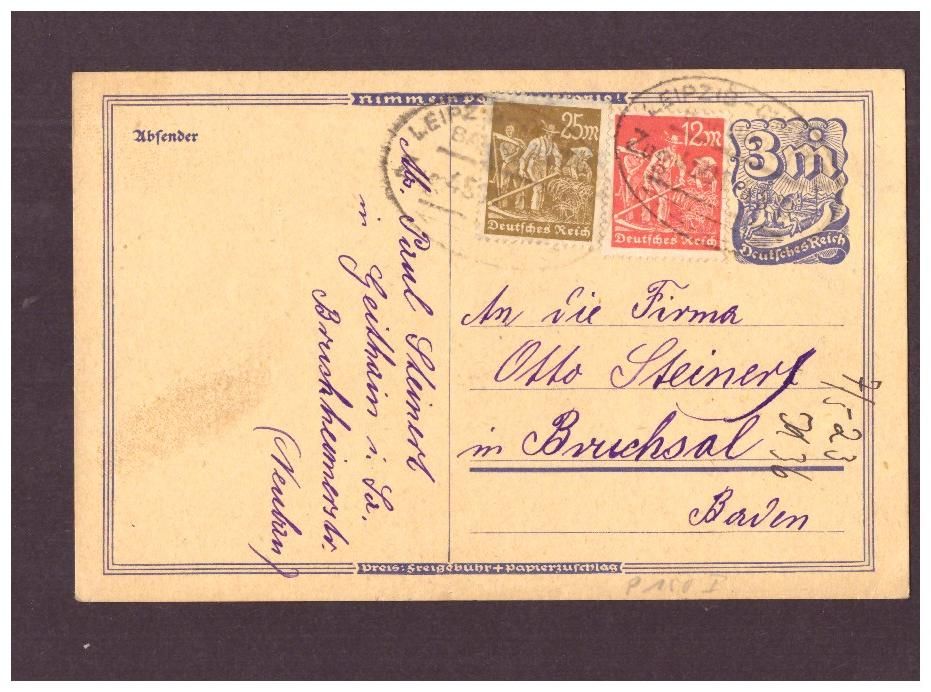 Nimm ein
Absender
Ab. Paul Steinert
in Geithain i. Sa.
Bruchheimerstr.
(Neubau)
LEIPZ
BA
25M
Deutsches Reich
LEIPZIG-
12M
Deutsches Reich
3 M
Deutsches Reich
An die Firma
Otto Steinert
in Bruchsal
Baden
7/5-23
36
Preis: Freigebühr + Papierzuschlag
P 150 I